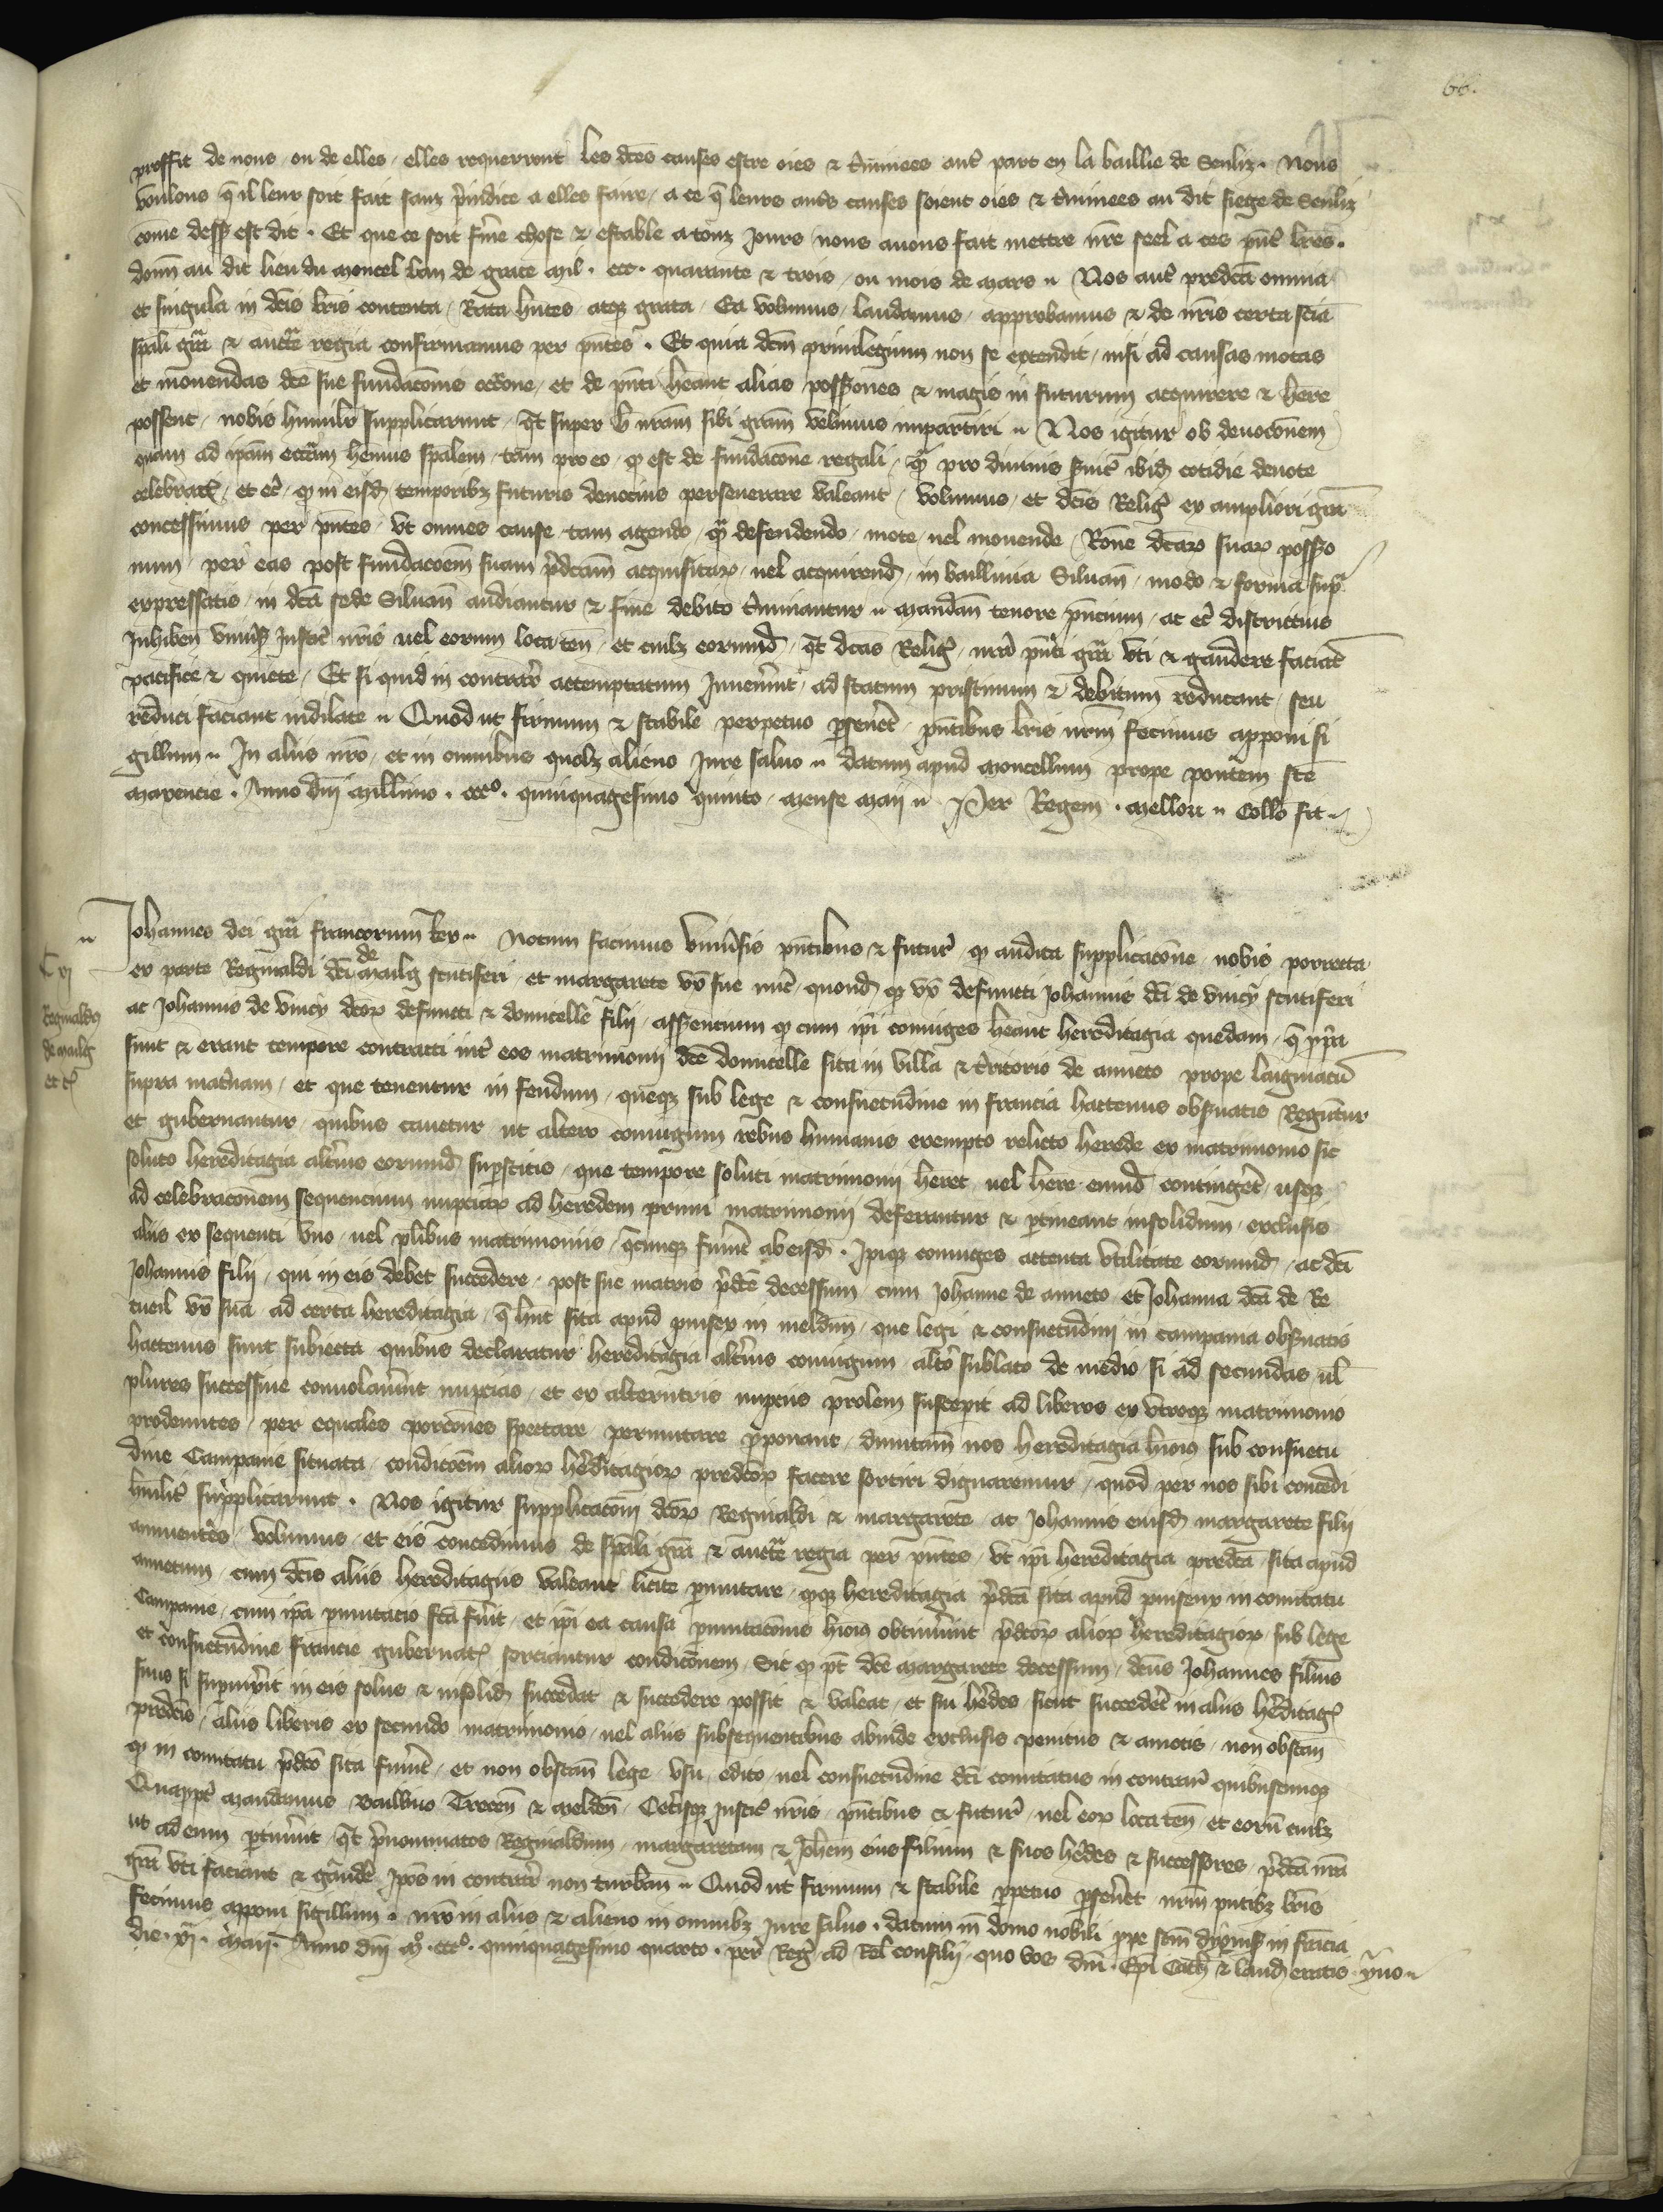 66.
proffit de nous ou de elles, elles requerront les dces causes estre oies & t̾minees autˀ part en la baillie de Senliz. Nous
voulons q̄ il leur soit fait sanz p̾iudice a elles faire, a ce q̄ leurs causes soient oies & t̾minees au dit siege de Senliz
cōme dess9 est dit. Et que ce soit f̾me chose & estable a touz jours nous auons fait mettre nr̄e seel a ces pn̄tˀ lr̄es.
donn̄ au dit lieu du moncel lan de grace mil. ccc. quarante & trois, ou mois de mars. Nos autˀ predcā omnia
et singula in dcīs lr̄is contenta, Rata hn̄tes atqꝫ grata, Ea volumus, laudamus, approbamus & de nr̄is certa scīa
sp̄ali gr̄a & auctt̄e regia confirmamus per pn̄tes. Et quia dcm̄ priuilegium non se extendit, nisi ad causas motas
et mouendas dcē sue fundacōnis occōne, et de pn̄ti heāant alias possessōnes & magis in futurum acquirere & hēre
possent, nobis humilr̄ supplicarunt, qt̄ super h̾ nr̄am sibi gr̄am velimus impartiri. Nos igitur ob deuocōnem
quam ad ip̄am eccl̄iam hēmus sp̄alem, tam pro eo, qꝫ est de fundacōne regali, q̄ pro diuinis s̾uitˀ ibid̄ cotidie deuote
celebratˀ, et ec̄, qꝫ in eisd̄ temporibꝫ futuris deuocius perseuerare valeant, volumus, et dcīs Religˀ ex ampliori gr̄a
concessimus per pn̄tes, vt omnes cause, tam agendo, q̄ defendendo, mote, uel mouende, Rōne dcāꝝ suaꝝ possessio
num, per eas post fundacoēm suam p̾dcām acquisitaꝝ, uel acquirend̄, in bailliuia Siluan̄, modo & forma sup̄
expressatis, in dcā sede Siluan̄ audiantur & fine debito t̾minantur. mandan̄ tenore pn̄cium, ac ec̄ districtius
Inhiben̄ vniu̾s9 Justicˀ nr̄is uel eorum loca ten̄, et cuilꝫ eorumd̄, qt̄ dcās Religˀ nr̄a pn̄ti gr̄a vti & gaudere faciāt
pacifice & quiete, Et si quid in contrarˀ attemptatum Inuen̾int, ad statum pristinum & debitum reducant, seu
reduci faciant indilate. Quod ut firmum & stabile perpetuo p̄seuēt, pn̄tibus lr̄is nr̄m fecimus apponi si
gillum. In aliis nr̄o, et in omnibus quolꝫ alieno Jure saluo. datum apud moncellum prope pontem scē
maxencie. Anno dn̄i millimo. ccco. quinquagesimo quinto, mense maij. Per Regem. Mellori. Collō fit.

Johannes dei gr̄a francorum Rex. Notum facimus vniu̾sis pn̄tibus & futurˀ qꝫ audita supplicacōne nobis porrecta
ex parte Reginaldi dcī de maulg scutiferi, et margarete vx̄ sue nūc, quond̄ qꝫ vx̄ defuncti Johannis dcī de vincy scutiferi
Cxj
Reginaldꝫ
de maulg
et cˀ
ac Johannis de vincy dcōꝝ defuncti & domicelle filij, assencium qꝫ cum ip̄i coniuges heāant hereditagia quedam, q̄ pp̄ia
sunt & erant tempore contracti int̾ eos matrimonij dcē domicelle sita in villa & t̾ritorio de anneto prope laigniacū
supra mat̾nam, et que tenentur in feudum, queqꝫ sub lege & consuetudine in francia hactenus obs̾uatis Reguntur
et gubernantur, quibus cauetur ut altero coniugum rebus humanis exempto relicto herede ex matrimonio sic
soluto hereditagia alt̾ius eorumd̄ sup̄stitis, que tempore soluti matrimonij hēret, uel hēre eumd̄ contingēt, usqꝫ
ad celebracōnem sequencium nupciaꝝ ad heredem primi matrimonij deferantur & p̄tineant insolidum, exclusis
aliis ex sequenti vno, uel p̄libus matrimoniis, q̄cumqꝫ fuīnt ab eisd̄. Ipiqꝫ coniuges attenta vtilitate eorumd̄, ac dcī
Johannis filij, qui in eis debet succedere, post sue matris p̾dcē decessum, cum Johanne de anneto et Johanna dcā de Re
tueil vx̄ sua ad certa hereditagia, q̄ hn̄t sita apud puisex in meldun̄, que legi & consuetudini in campania obs̾uatis
hactenus sunt subiecta quibus declaratur hereditagia alt̾ius coniugum, alt̾o sublato de medio si ad secundas ul̄
plures successiue conuolau̾int nupcias, et ex alterutris nupciis prolem suscep̄it ad liberos ex vtroqꝫ matrimonio
prodeuntes, per equales porcōnes spectare permutare p̄ponant, dumtam̄ nos hereditagia hmōi9 sub consuetu
dine Campanie situata, condicōem alioꝝ h̾editagioꝝ predcōꝝ facere sortiri dignaremur, quod per nos sibi concedi
humilitˀ supplicarunt. Nos igitur supplicacōni dcōꝝ Reginaldi & margarete ac Johannis eiusd̄ margarete filij
annuentes, volumus, et eis concedimus de sp̄ali gr̄a & auctt̄e regia per pn̄tes, vt ip̄i hereditagia predcā sita apud
annetum, cum dcīs aliis hereditagiis valeant licite p̄mutare, qꝫqꝫ hereditagia p̾dcā sita apud puiseux in comitatu
Campanie, cum ip̄a p̄mutacio fcā fu̾it, et ip̄i ea causa p̄mutacōnis hmōi9 obtinu̾int, p̾dcōꝝ alioꝝ hereditagioꝝ sub lege
et consuetudine francie gubernatˀ sorciantur condicōnem, Sic qꝫ p9t dcē margarete decessum, dcūs Johannes filius
suus si sup̄uix̾it in eis solus & insolid̄ succedat & succedere possit & valeat, et sui h̾edes sicut succedēt in aliis h̾editagˀ
predcīs, aliis liberis ex secundo matrimonio, uel aliis subsequentibus abinde exclusis penitus & amotis, non obstan̄
qꝫ in comitatu p̾dcō sita fuīnt, et non obstan̄ lege, vsu, edito, uel consuetudine dcī comitatus in contrarˀ quibuscumqꝫ
Quapp̄t̾ mandamus Bailliuo Trecen̄ & melden̄, Cet̾isqꝫ Justicˀ nr̄is, pn̄tibus & futurˀ, uel eoꝝ loca ten̄, et eorū cuilꝫ
ut ad eum p̄tinu̾it, qt̄ p̾nominatos Reginaldum, margaretam & Joh̄em eius filium & suos h̾edes & successores, p̾dcā nr̄a
gr̄a vti faciant & gaudēe, Ip̄os in contrarˀ non turban̄. Quod ut firmum & stabile p̄petuo p̄seuēt nr̄m pn̄tibꝫ lr̄is
fecimus apponi sigillum. nr̄o in aliis & alieno in omnibꝫ Jure saluo. datum in domo nobili pp̄e scm̄ dyonis9 in frācia
die. vj. maij. Anno dn̄i mo. ccco. quinquagesimo quarto. per Regˀ ad Rel̄ consilij, quo vos dn̄i. Epī Cath̄ & laud̄ eratis yuo.